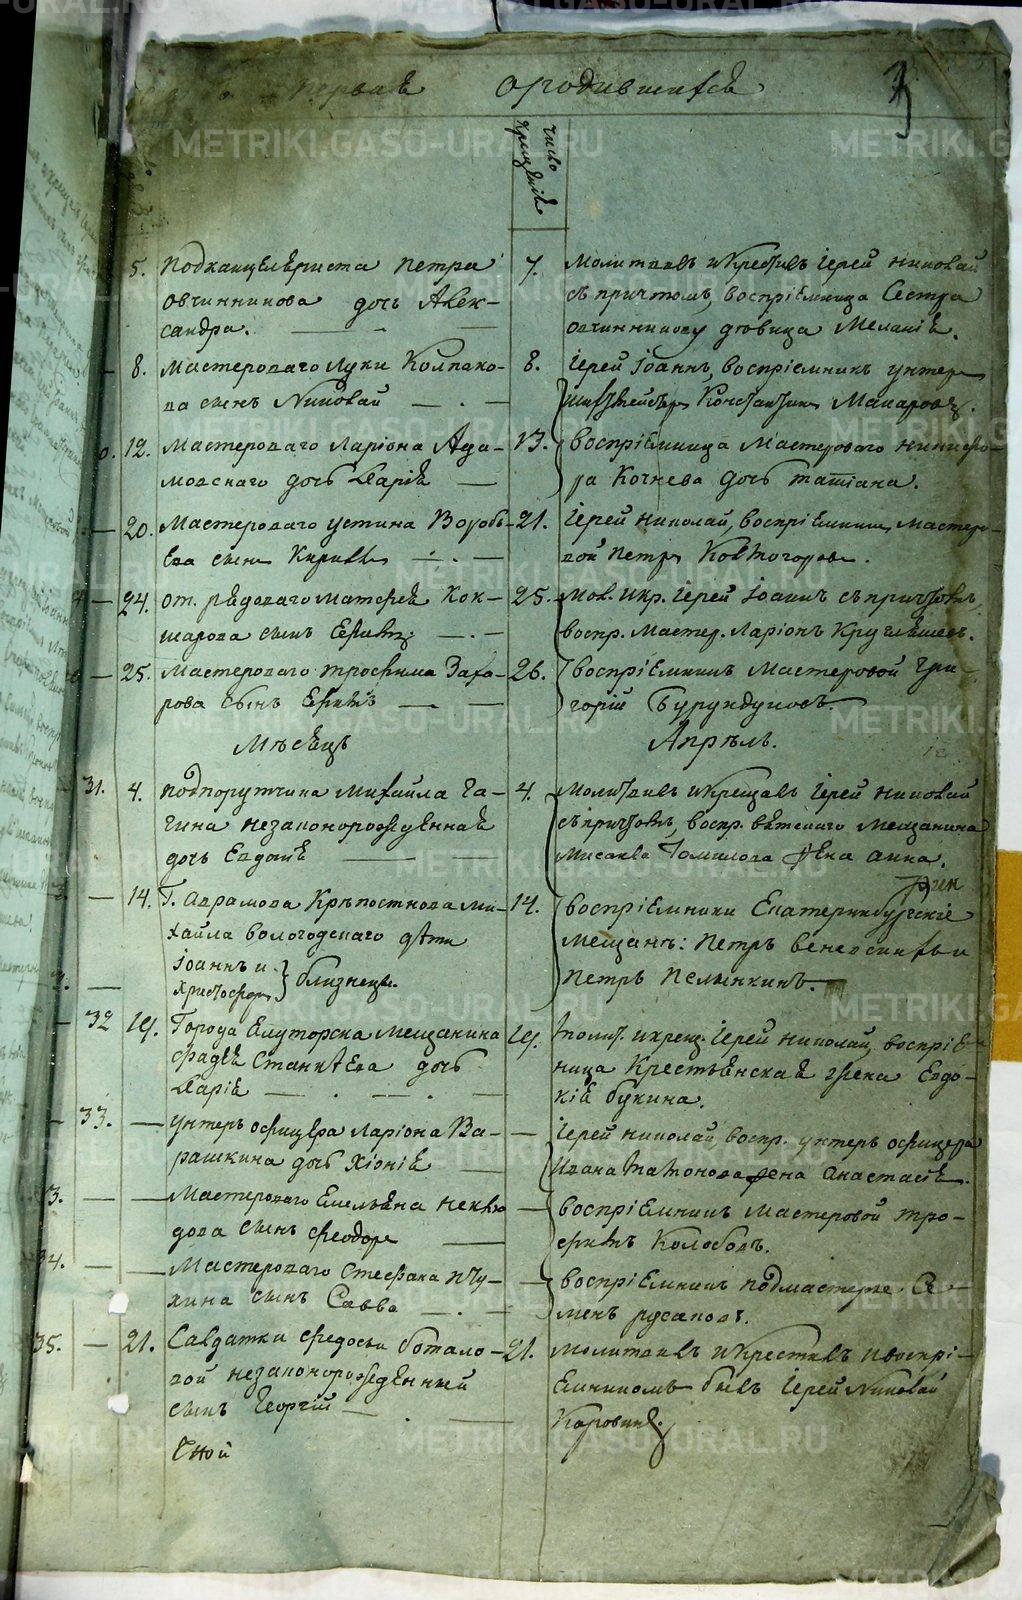 первая о родившихся
число
крещения
5. Подканцеляриста Петра
Овчинникова дочь Алек-
сандра.
7. Молитвовалъ и крестилъ Іерей Николай
съ причтомъ, воспріемница Сестра
Овчинникову девица Меланія.
8. Мастероваго Луки Колпако-
ва сынъ Николай
8. Іерей Іоаннъ, воспріемникъ унтеръ
шихтмейстеръ Константинъ Макаровъ.
12. Мастероваго Ларіона Ада-
мовскаго дочь Дарія
13. воспріемница Мастероваго Никифо-
ра Кочнева дочь Татіана.
20. Мастероваго Устина Воробь-
ева сынъ Кирилъ
21. Іерей Николай, воспріемникъ мастеро-
вой Петръ
24. от. рядоваго Матфея Кок-
шарова сынъ Ефимъ
25. Мол. и кр. Іерей Іоаннъ съ причтомъ,
воспр. мастер. Ларіонъ Кругляшевъ.
25. Мастероваго Трофима Заха-
рова сынъ Ефимъ
26. воспріемникъ Мастеровой Гри-
горій Бурундуковъ
Месяцъ Апрель.
31. 4. Подпорутчика Михайла Га-
гина незаконорожденная
дочь Евдокія
4. Молитвовалъ и крещалъ Іерей Николай
съ причтомъ, воспр. вятскаго Мещанина
жена Анна.
14. Г. Аврамова Крепостнова Ми-
хайла Вологодскаго дети
Іоаннъ и
Христофоръ близнецы.
14. воспріемники Екатеринбургскіе
Мещанъ: Петръ и
Петръ Пелынкинъ.
32 19. Города Елуторска мещанина
Фадея дочь
Дарія
19. Молит. и крещ. Іерей Николай, воспріе-
ница Крестьянская жена Евдо-
кія Букина.
33. Унтеръ офицера Ларіона Ва-
рашкина дочь Хіонія
Іерей Николай воспр. унтеръ офицера
Ивана жена Анастасія.
Мастероваго Емельяна Неклю-
дова сынъ Феодоръ
воспріемникъ мастеровой Тро-
фимъ Колобовъ.
34. Мастероваго Стефана Пчу-
хина сынъ Савва
воспріемникъ подмастерье Се-
менъ Русаковъ.
35. 21. Салдатки Федосьи Ботало-
вой незаконорожденный
сынъ Георгій
21. Молитвовалъ и крестилъ и воспрі-
емникомъ былъ Іерей Николай
Коровинъ.